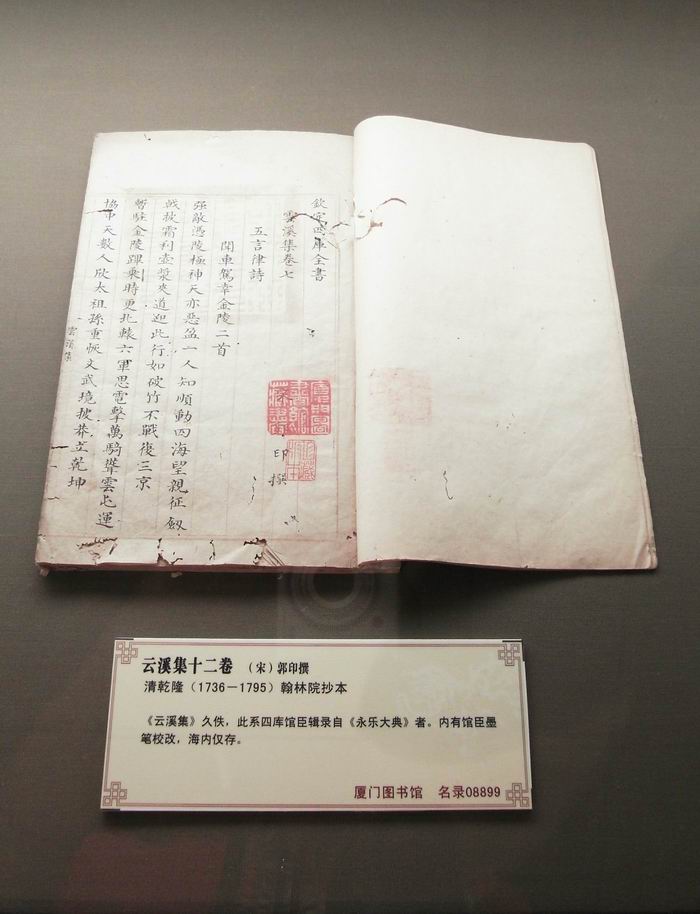 欽定四庫全書
雲溪集卷七
印撰
五言律詩
聞車駕幸金陵二首
强敵憑陵極神天亦惡盈一人知順動四海望親征劔
戟披霜利壺漿夾道迎此行如破竹不戰復三京
暫駐金陵蹕乘時更北轅六軍思電擊萬騎聳雲屯運
協中天數人欣太祖孫重恢文武境披莽立乾坤
雲溪集
云溪集十二卷 （宋）郭印撰
清乾隆（1736－1795）翰林院抄本
《云溪集》久佚，此系四库馆臣辑录自《永乐大典》者。内有馆臣墨
笔校改，海内仅存。
厦门图书馆 名录08899